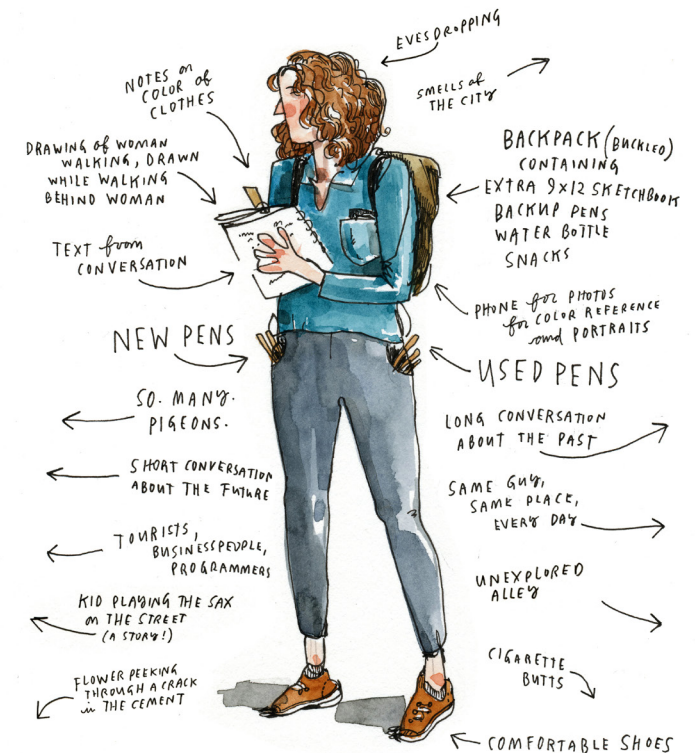 EVESDROPPING
SMELLS of
THE CITY
NOTES on
COLOR of
CLOTHES
DRAWING of WOMAN
WALKING, DRAWN
WHILE WALKING
BEHIND WOMAN
TEXT from
CONVERSATION
NEW PENS
SO. MANY.
PIGEONS.
SHORT CONVERSATION
ABOUT THE FUTURE
TOURISTS,
BUSINESSPEOPLE,
PROGRAMMERS
KID PLAYING THE SAX
on THE STREET
(A STORY!)
FLOWER PEEKING
THROUGH A CRACK
in THE CEMENT
BACKPACK (BUCKLED)
CONTAINING
EXTRA 9x12 SKETCHBOOK
BACKUP PENS
WATER BOTTLE
SNACKS
PHONE for PHOTOS
for COLOR REFERENCE
and PORTRAITS
USED PENS
LONG CONVERSATION
ABOUT THE PAST
SAME GUY,
SAME PLACE,
EVERY DAY
UNEXPLORED
ALLEY
CIGARETTE
BUTTS
COMFORTABLE SHOES